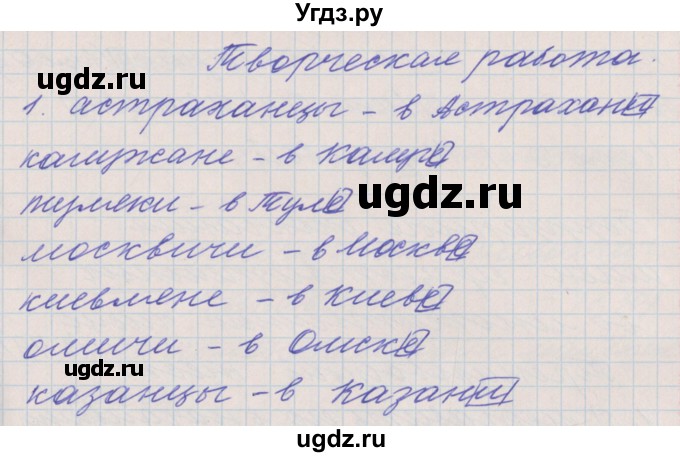 Угдз.ру
Творческая работа.
ugdz.ru
1. астраханцы – в Астрахани
ugdz.ru
калужане – в Калуге
туляки – в Туле
ugdz.ru
москвичи – в Москве
киевляне – в Киеве
ugdz.ru
омичи – в Омске
ugdz.ru
казанцы – в Казани
ugdz.ru